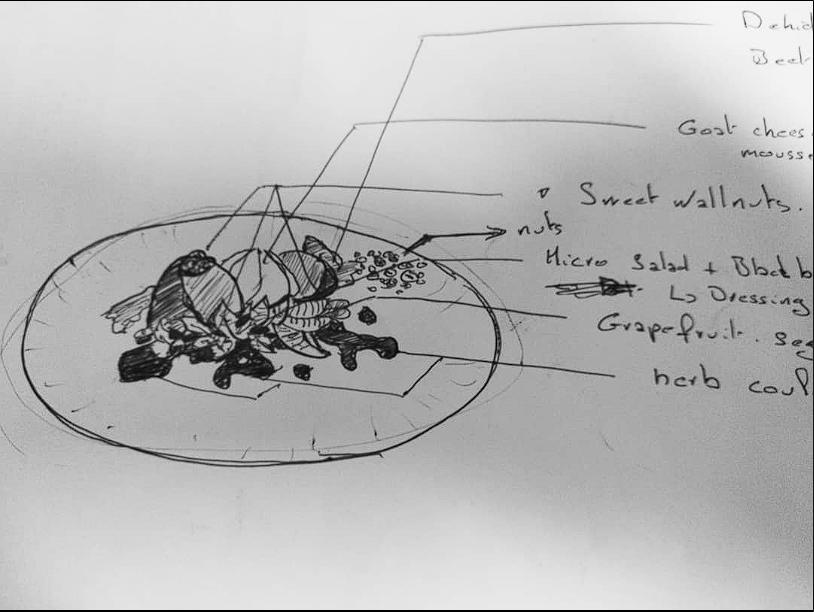 Dehid
Beet
Goat chees
mousse
Sweet wallnuts.
nuts
Micro Salad + Black b
↳ Dressing
Grapefruit. seg
herb coul